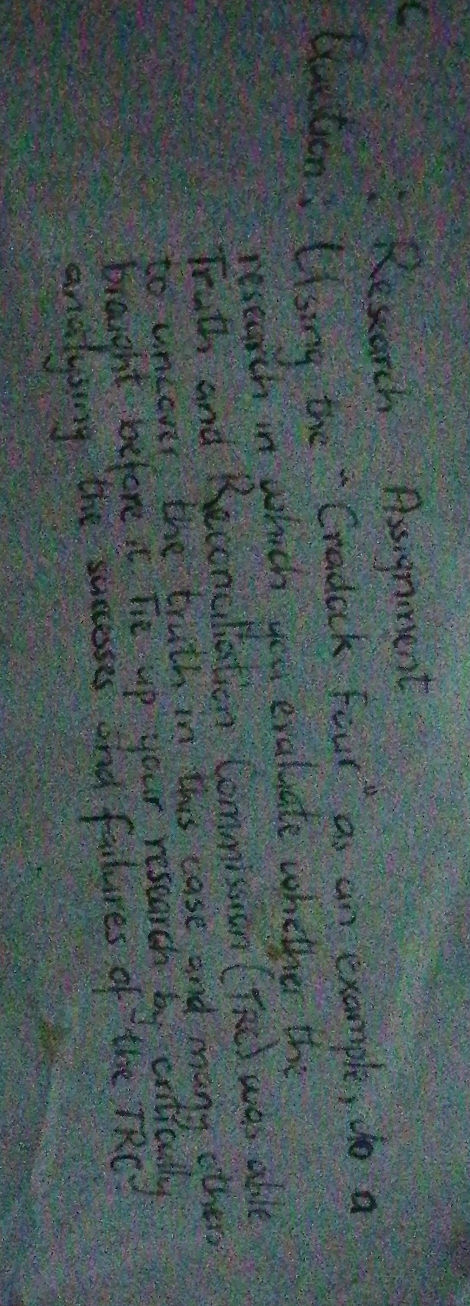 : Research Assignment
Question: Using the "Cradock Four" as an example, do a
research in which you evaluate whether the
Truth and Reconciliation Commission (TRC) was able
to uncover the truth in this case and many others
brought before it. Tie up your research by critically
analysing the successes and failures of the TRC